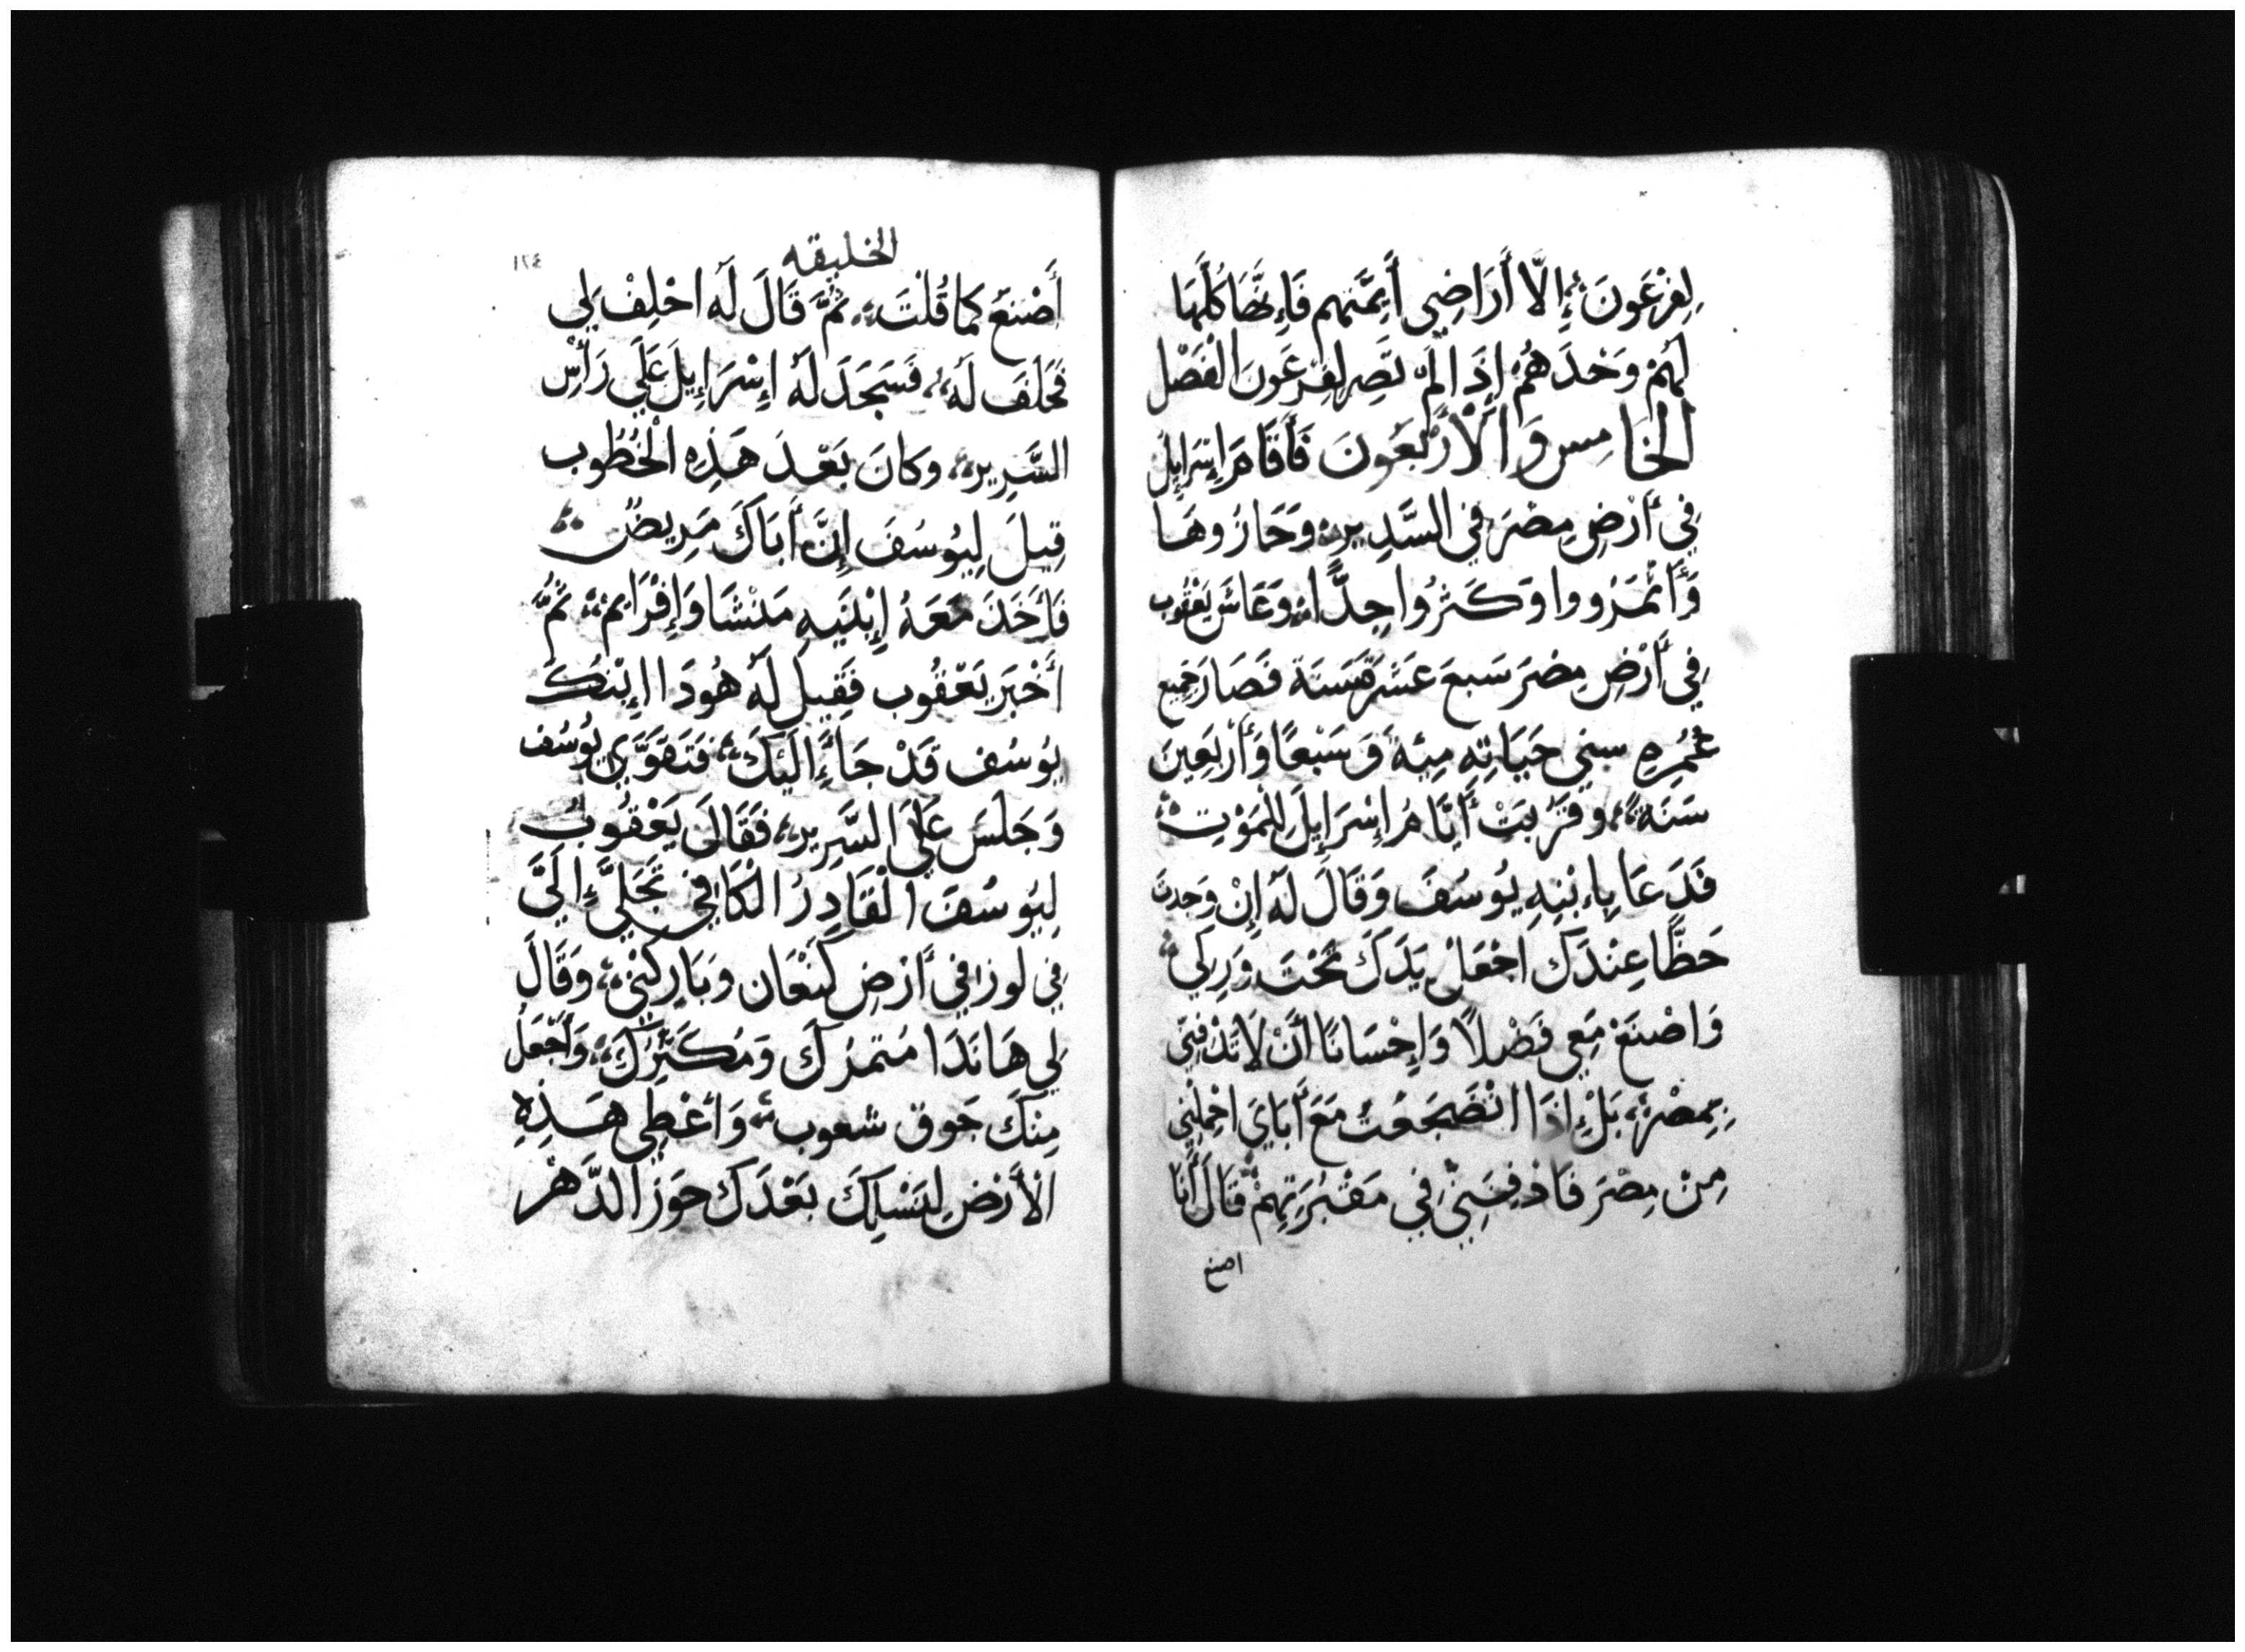 لِفِرْعَونَ إِلَّا أَرَاضِي أَيِمَّتِهِم فَإِنَّهَا كُلَّهَا
لَهُمْ وَحْدَهُمْ إِذَا لَمْ تَصِر لِفِرْعَونَ الْفَصْل
الخَامِس وَالْأَرْبَعُونَ فَأَقَامَ إِسْرَإِيلُ
فِي أَرْضِ مِصْرَ فِي السَّدِيرِ وَحَازُوهَا
وَأَثْمَرُووا وَكَثِرُوا جِدًّا وَعَاشَ يَعْقُوب
فِي أَرْضِ مِصْرَ سَبعَ عَشْرَةَ سَنَة فَصَارَ جَمِيع
عُمْرِهِ سِنِي حَيَاتِهِ مِئَةً وَسَبْعًا وَأَرْبَعِينَ
سَنَة وَقَرُبَتْ أَيَّامُ إِسْرَإِيلَ لِلْمَوْتِ
فَدَعَا بِاءبْنِهِ يُوسُفَ وَقَالَ لَهُ إِنْ وَجَدتُ
حَظًّا عِنْدَكَ اجْعَلْ يَدَكَ تَحْتَ وَرِكِي
وَاصْنَعْ مَعِي فَضْلًا وَإِحْسَانًا أَنْ لَا تَدْفِنِّي
بِمِصْرَ بَلْ إِذَا انْضَجَعْتُ مَعَ أَبَايَ احْمِلْنِي
مِنْ مِصْرَ فَادْفِنِّي فِي مَقْبُرَتِهِمْ قَالَ أَنَا
اصنع
الخليقه
١٢٤
أَصْنَعُ كَمَا قُلْتَ ثُمَّ قَالَ لَهُ احْلِفْ لِي
فَحَلَفَ لَهُ فَسَجَدَ لَهُ إِسْرَإِيلَ عَلَي رَأْسِ
السَّرِيرِ وَكَانَ بَعْدَ هَذِهِ الْخُطُوب
قِيلَ لِيُوسُفَ إِنَّ أَبَاكَ مَرِيضٌ
فَأَخَذَ مَعَهُ إِبْنَيهِ مَنْشَا وَإِفْرَايِمْ ثُمَّ
أَخْبَرَ يَعْقُوب فَقِيل لَهُ هُودَا اإِبْنُكَ
يُوسُف قَدْ جَاءَ إِلَيْكَ فَتَقَوَّي يُوسُف
وَجَلَسَ عَلَي السَّرِيرِ فَقَالَ يَعْقُوبُ
لِيُوسُفَ الْقَادِرُ الْكَافِي تَجَلَّي إِلَيَّ
فِي لوزا فِي أَرْضِ كَنْعَان وَبَارَكَنِي وَقَالَ
لِي هَانَدَا مُثمرُكَ وَمُكَثِّرُكَ وَأَجْعَلُ
مِنْكَ جَوق شعوب وَأعْطِي هَذِهِ
الْأَرْضِ لِنَسْلِكَ بَعْدَكَ حَوْزَ الدَّهْر